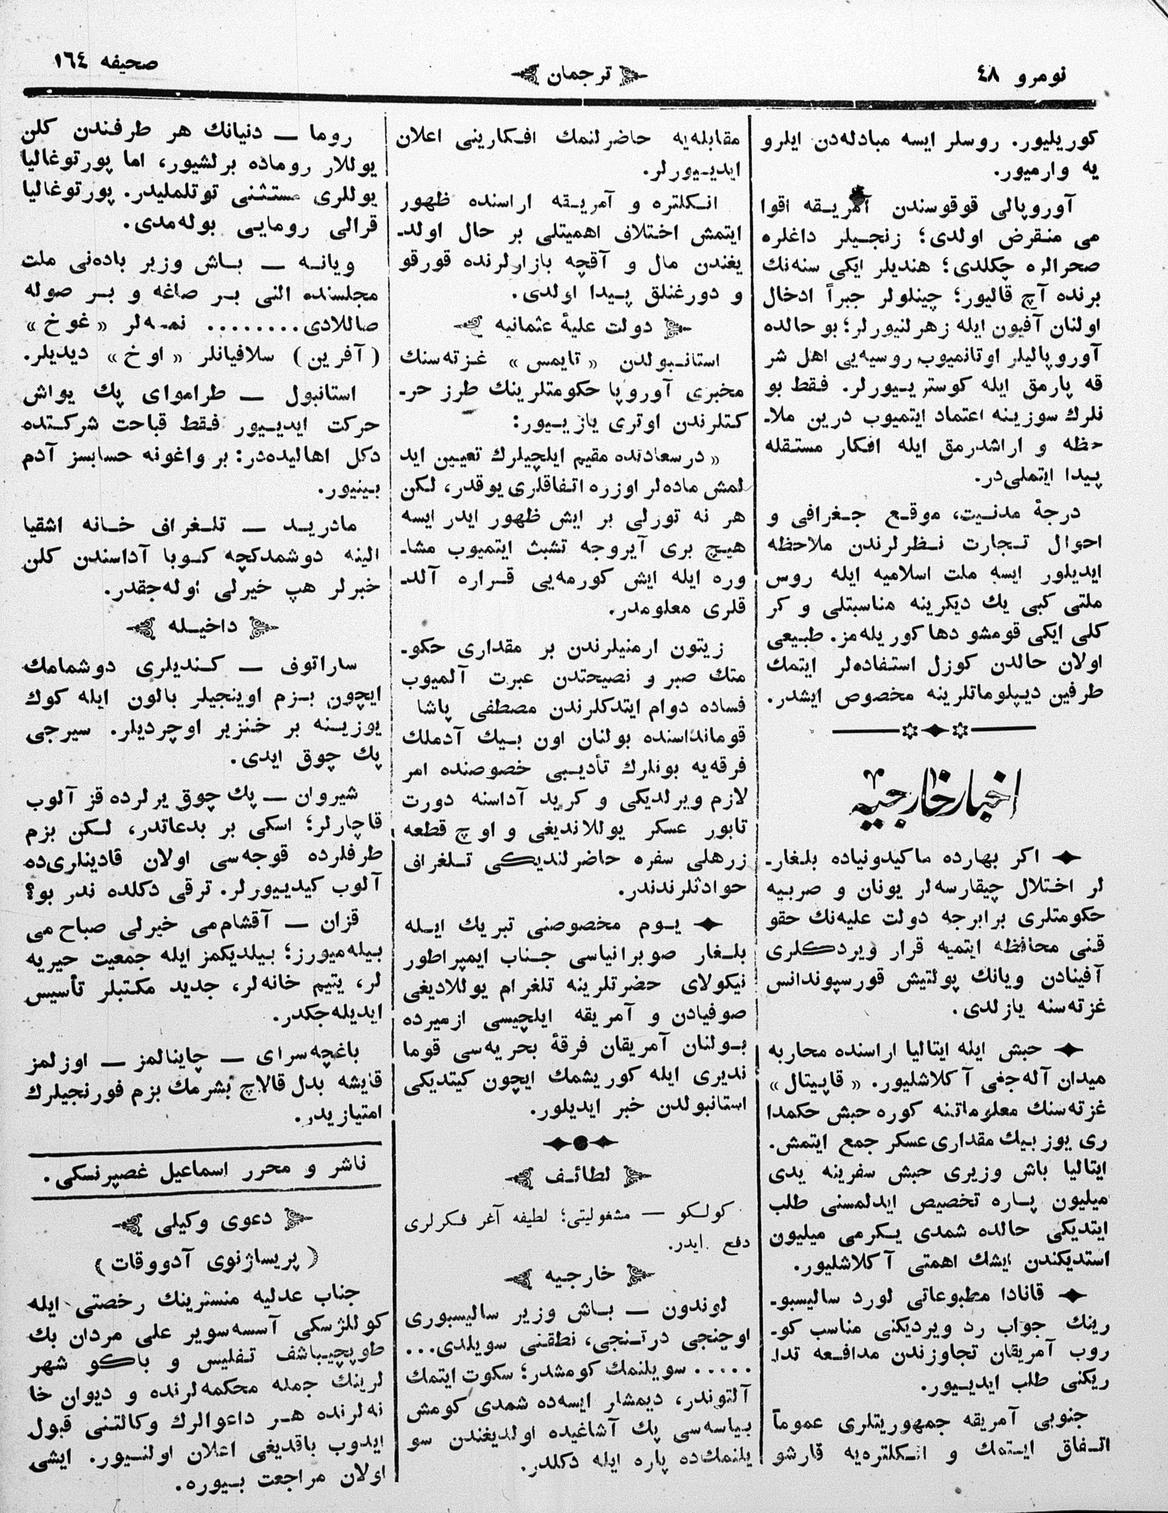 نومرو ٤٨
ترجمان
صحیفه ١٦٤
كوریلیور. روسلر ایسه مبادله‌دن ایلرو
یه وارمیور.
آوروپالی قوقوسندن آمریقه اقوا
می منقرض اولدی؛ زنجیلر داغلره
صحرالره چكلدی؛ هندیلر ایكی سنه‌نك
برنده آچ قالیور؛ چینلولر جبراً ادخال
اولنان آفیون ایله زهرلنیورلر؛ بو حالده
آوروپالیلر اوتانمیوب روسیه‌یی اهل شر
قه پارمق ایله كوستریـیورلر. فقط بو
نلرك سوزینه اعتماد ایتمیوب درین ملا-
حظه و اراشدرمق ایله افكار مستقله
پیدا ایتملی‌در.
درجهٔ مدنیت، موقع جغرافی و
احوال تجارت نظرلرندن ملاحظه
ایدیلور ایسه ملت اسلامیه ایله روس
ملتی كبی یك دیكرینه مناسبتلی و كر
كلی ایكی قومشو دها كوریله‌مز. طبیعی
اولان حالدن كوزل استفاده‌لر ایتمك
طرفین دیپلوماتلرینه مخصوص ایشدر.
اخبار خارجیه
اكر بهارده ماكیدونیاده بلغار-
لر اختلال چیقارسه‌لر یونان و صربیه
حكومتلری برابرجه دولت علیه‌نك حقو
قنی محافظه ایتمیه قرار ویردكلری
آفینادن ویانك پولتیش قورسپوندانس
غزته‌سنه یازلدی.
حبش ایله ایتالیا اراسنده محاربه
میدان آله‌جغی آكلاشلیور. «قاپیتال»
غزته‌سنك معلوماتنه كوره حبش حكمدا
ری یوز بیك مقداری عسكر جمع ایتمش.
ایتالیا باش وزیری حبش سفرینه یدی
میلیون پاره تخصیص ایدلمسنی طلب
ایتدیكی حالده شمدی یكرمی میلیون
استدیكندن ایشك اهمتی آكلاشلیور.
قانادا مطبوعاتی لورد سالیسبو-
رینك جواب رد ویردیكنی مناسب كو-
روب آمریقان تجاوزندن مدافعه تدا
ریكنی طلب ایدیـیور.
جنوبی آمریقه جمهوریتلری عموماً
اتفاق ایتمك و انكلتره‌یه قارشو
مقابله‌یه حاضرلنمك افكارینی اعلان
ایدیـیورلر.
انكلتره و آمریقه اراسنده ظهور
ایتمش اختلاف اهمیتلی بر حال اولد-
یغندن مال و آقچه بازارلرنده قورقو
و دورغنلق پیدا اولدی.
دولت علیهٔ عثمانیه
استانبولدن «تایمس» غزته‌سنك
مخبری آوروپا حكومتلرینك طرز حر-
كتلرندن اوتری یازیـیور:
«درسعادتده مقیم ایلچیلرك تعیین اید
لمش ماده‌لر اوزره اتفاقلری یوقدر، لكن
هر نه تورلی بر ایش ظهور ایدر ایسه
هیچ بری آیروجه تشبث ایتمیوب مشا-
وره ایله ایش كورمه‌یی قراره آلد-
قلری معلومدر.
زیتون ارمنیلرندن بر مقداری حكو-
متك صبر و نصیحتدن عبرت آلمیوب
فساده دوام ایتدكلرندن مصطفی پاشا
قوماندا‌سنده بولنان اون بیك آدملك
فرقه‌یه بونلرك تأدیبی خصوصنده امر
لازم ویرلدیكی و كرید آداسنه دورت
تابور عسكر یوللاندیغی و اوچ قطعه
زرهلی سفره حاضرلندیكی تلغرافی
حوادثلرندندر.
یوم مخصوصنی تبریك ایله
بلغار صوبرانیاسی جناب ایمپراطور
نیكولای حضرتلرینه تلغرام یوللادیغی
صوفیادن و آمریقه ایلچیسی ازمیرده
بولنان آمریقان فرقهٔ بحریه‌سی قوما
ندیری ایله كوریشمك ایچون كیتدیكی
استانبولدن خبر ایدیلور.
لطائف
كولكو — مشغولیتی؛ لطیفه آغر فكرلری
دفع ایدر.
خارجیه
لوندون — باش وزیر سالیسبوری
اوچنجی درتنجی، نطقنی سویلدی...
..... سویلنمك كومشدر؛ سكوت ایتمك
آلتوندر، دیمشلر ایسه‌ده شمدی كومش
بیاسه‌سی پك آشاغیده اولدیغندن سو
یلنمك‌ده پاره ایله دكلدر.
روما — دنیانك هر طرفندن كلن
یوللار روماده برلشیور، اما پورتوغالیا
یوللری مستثنی توتلملیدر. پورتوغالیا
قرالی رومایی بوله‌مدی.
ویانه — باش وزیر باده‌نی ملت
مجلسنده النی بر صاغه و بر صوله
صاللادی........ نمسه‌لر «غوخ»
(آفرین) سلافیانلر «اوخ» دیدیلر.
استانبول — طراموای پك یواش
حركت ایدیـیور فقط قباحت شركتده
دكل اهالیده‌در: بر واغونه حسابسز آدم
بینیور.
مادرید — تلغرافی خانه اشقیا
الینه دوشمدكچه كوبا آداسندن كلن
خبرلر هپ خیرلی اوله‌جقدر.
داخیله
ساراتوف — كندیلری دوشمامك
ایچون بزم اوینجیلر بالون ایله كوك
یوزینه بر خنزیر اوچردیلر. سیرجی
پك چوق ایدی.
شیروان — پك چوق یرلرده قز آلوب
قاچارلر؛ اسكی بر بدعاتدر، لكن بزم
طرفلرده قوجه‌سی اولان قادینلری‌ده
آلوب كیدیـیورلر. ترقی دكلده ندر بو؟
قزان — آقشام‌می خیرلی صباح می
بیله‌میورز؛ بیلدیكمز ایله جمعیت خیریه
لر، یتیم خانه‌لر، جدید مكتبلر تأسیس
ایدیله‌جكدر.
باغچه‌سرای — چاینالمز — اوزلمز
قایشه بدل قالاچ بشرمك بزم فورنجیلرك
امتیازیدر.
ناشر و محرر اسماعیل غصپرنسكی.
دعوی وكیلی
(پریساژنوی آدووقات)
جناب عدلیه منسترینك رخصتی ایله
كوللژسكی آسسه‌سویر علی مردان بك
طوپچیباشف تفلیس و باكو شهر
لرینك جمله محكمه‌لرنده و دیوان خا
نه‌لرنده هر داعوالرك وكالتنی قبول
ایدوب باقدیغی اعلان اولنیور. ایشی
اولان مراجعت بیوره.